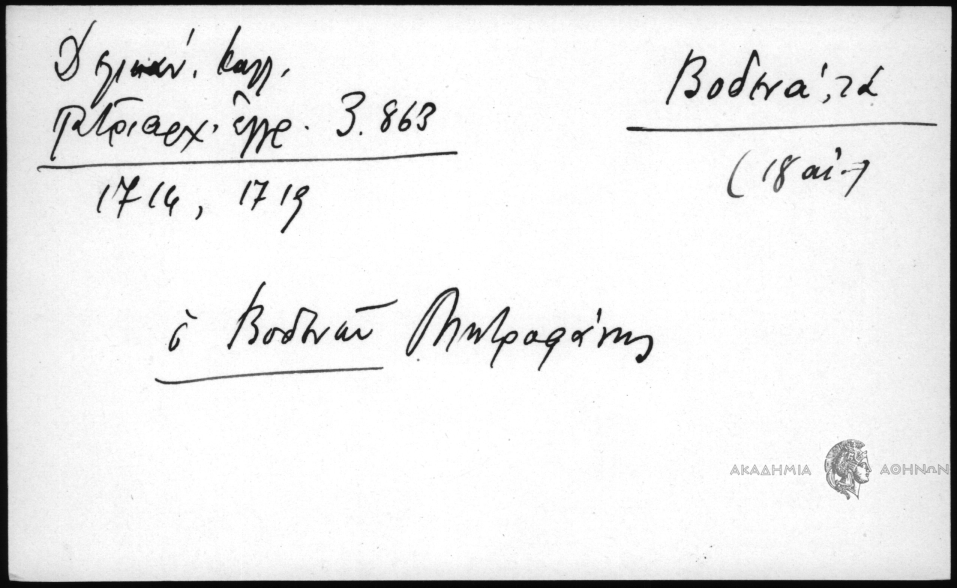 Δελικάν. Καλλ.
Πατριαρχ. ἔγγρ. 3. 863
1714, 1719
Βοδενά, τά
(18 αἰ.)
ὁ Βοδενῶν Μητροφάνης
ΑΚΑΔΗΜΙΑ ΑΘΗΝΩΝ